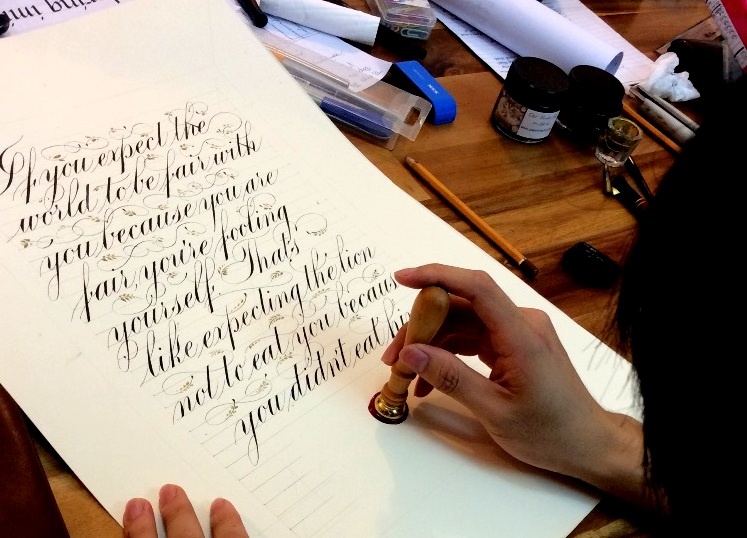 If you expect the
world to be fair with
you because you are
fair, you're fooling
yourself. That's
like expecting the lion
not to eat you because
you didn't eat hi